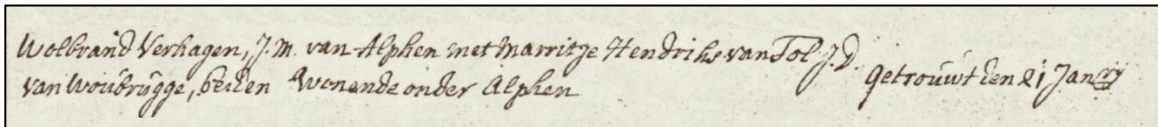 Wolbrand Verhagen, J.M. van Alphen met Marritje Hendriks van Tol J.D.
van Woubrugge, beiden Wonende onder Alphen
getrouwt den 21 Janry